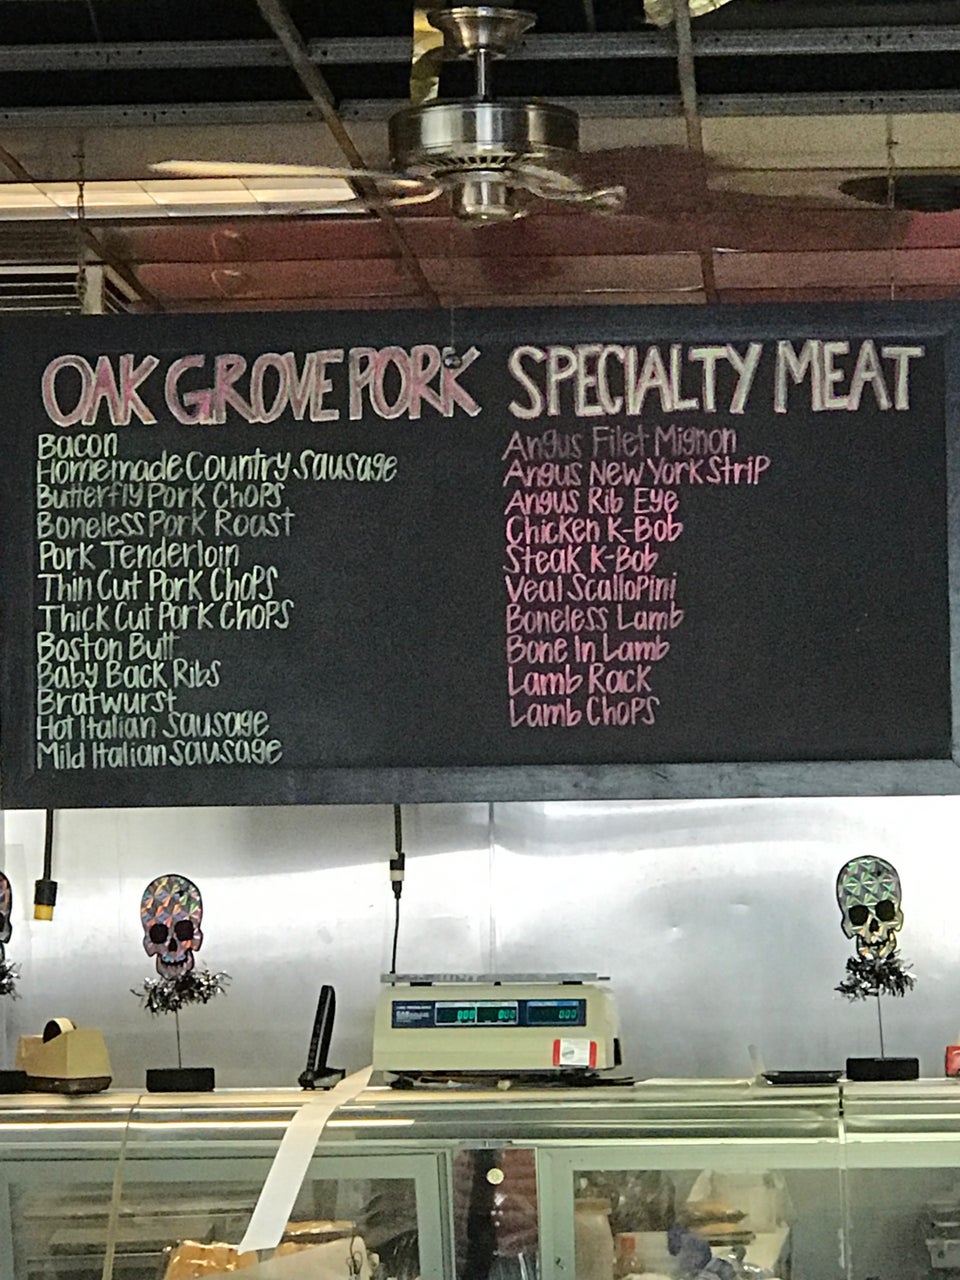 OAK GROVE PORK
Bacon
Homemade Country Sausage
Butterfly Pork Chops
Boneless Pork Roast
Pork Tenderloin
Thin Cut Pork Chops
Thick Cut Pork Chops
Boston Butt
Baby Back Ribs
Bratwurst
Hot Italian Sausage
Mild Italian Sausage
SPECIALTY MEAT
Angus Filet Mignon
Angus New York Strip
Angus Rib Eye
Chicken K-Bob
Steak K-Bob
Veal Scallopini
Boneless Lamb
Bone In Lamb
Lamb Rack
Lamb Chops
000 000 000